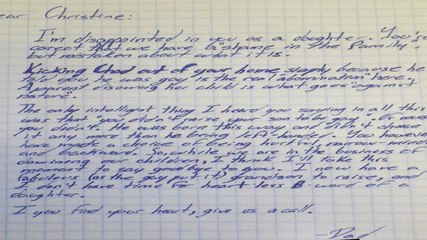 ear Christine:
I'm disappointed in you as a daughter. You're
correct that we have a "shame in the family",
but mistaken about what it is.
Kicking Chad out of your home simply because he
told you he was gay is the real "abomination" here.
A parent disowning her child is what goes "against
nature".
The only intelligent thing I heard you saying in all this
was that "you didn't raise your son to be gay". Of course
you didn't. He was born this way and didn't choose
it any more than he being left-handed. You however
have made a choice of being hurtful, narrow minded
and backward. So, while we are in the business of
disowning our children, I think I'll take this
moment to say goodbye to you. I now have a
fabulous (as the gay put it) grandson to raise, and
I don't have time for heart less B-word of a
daughter.
If you find your heart, give us a call.
-Dad